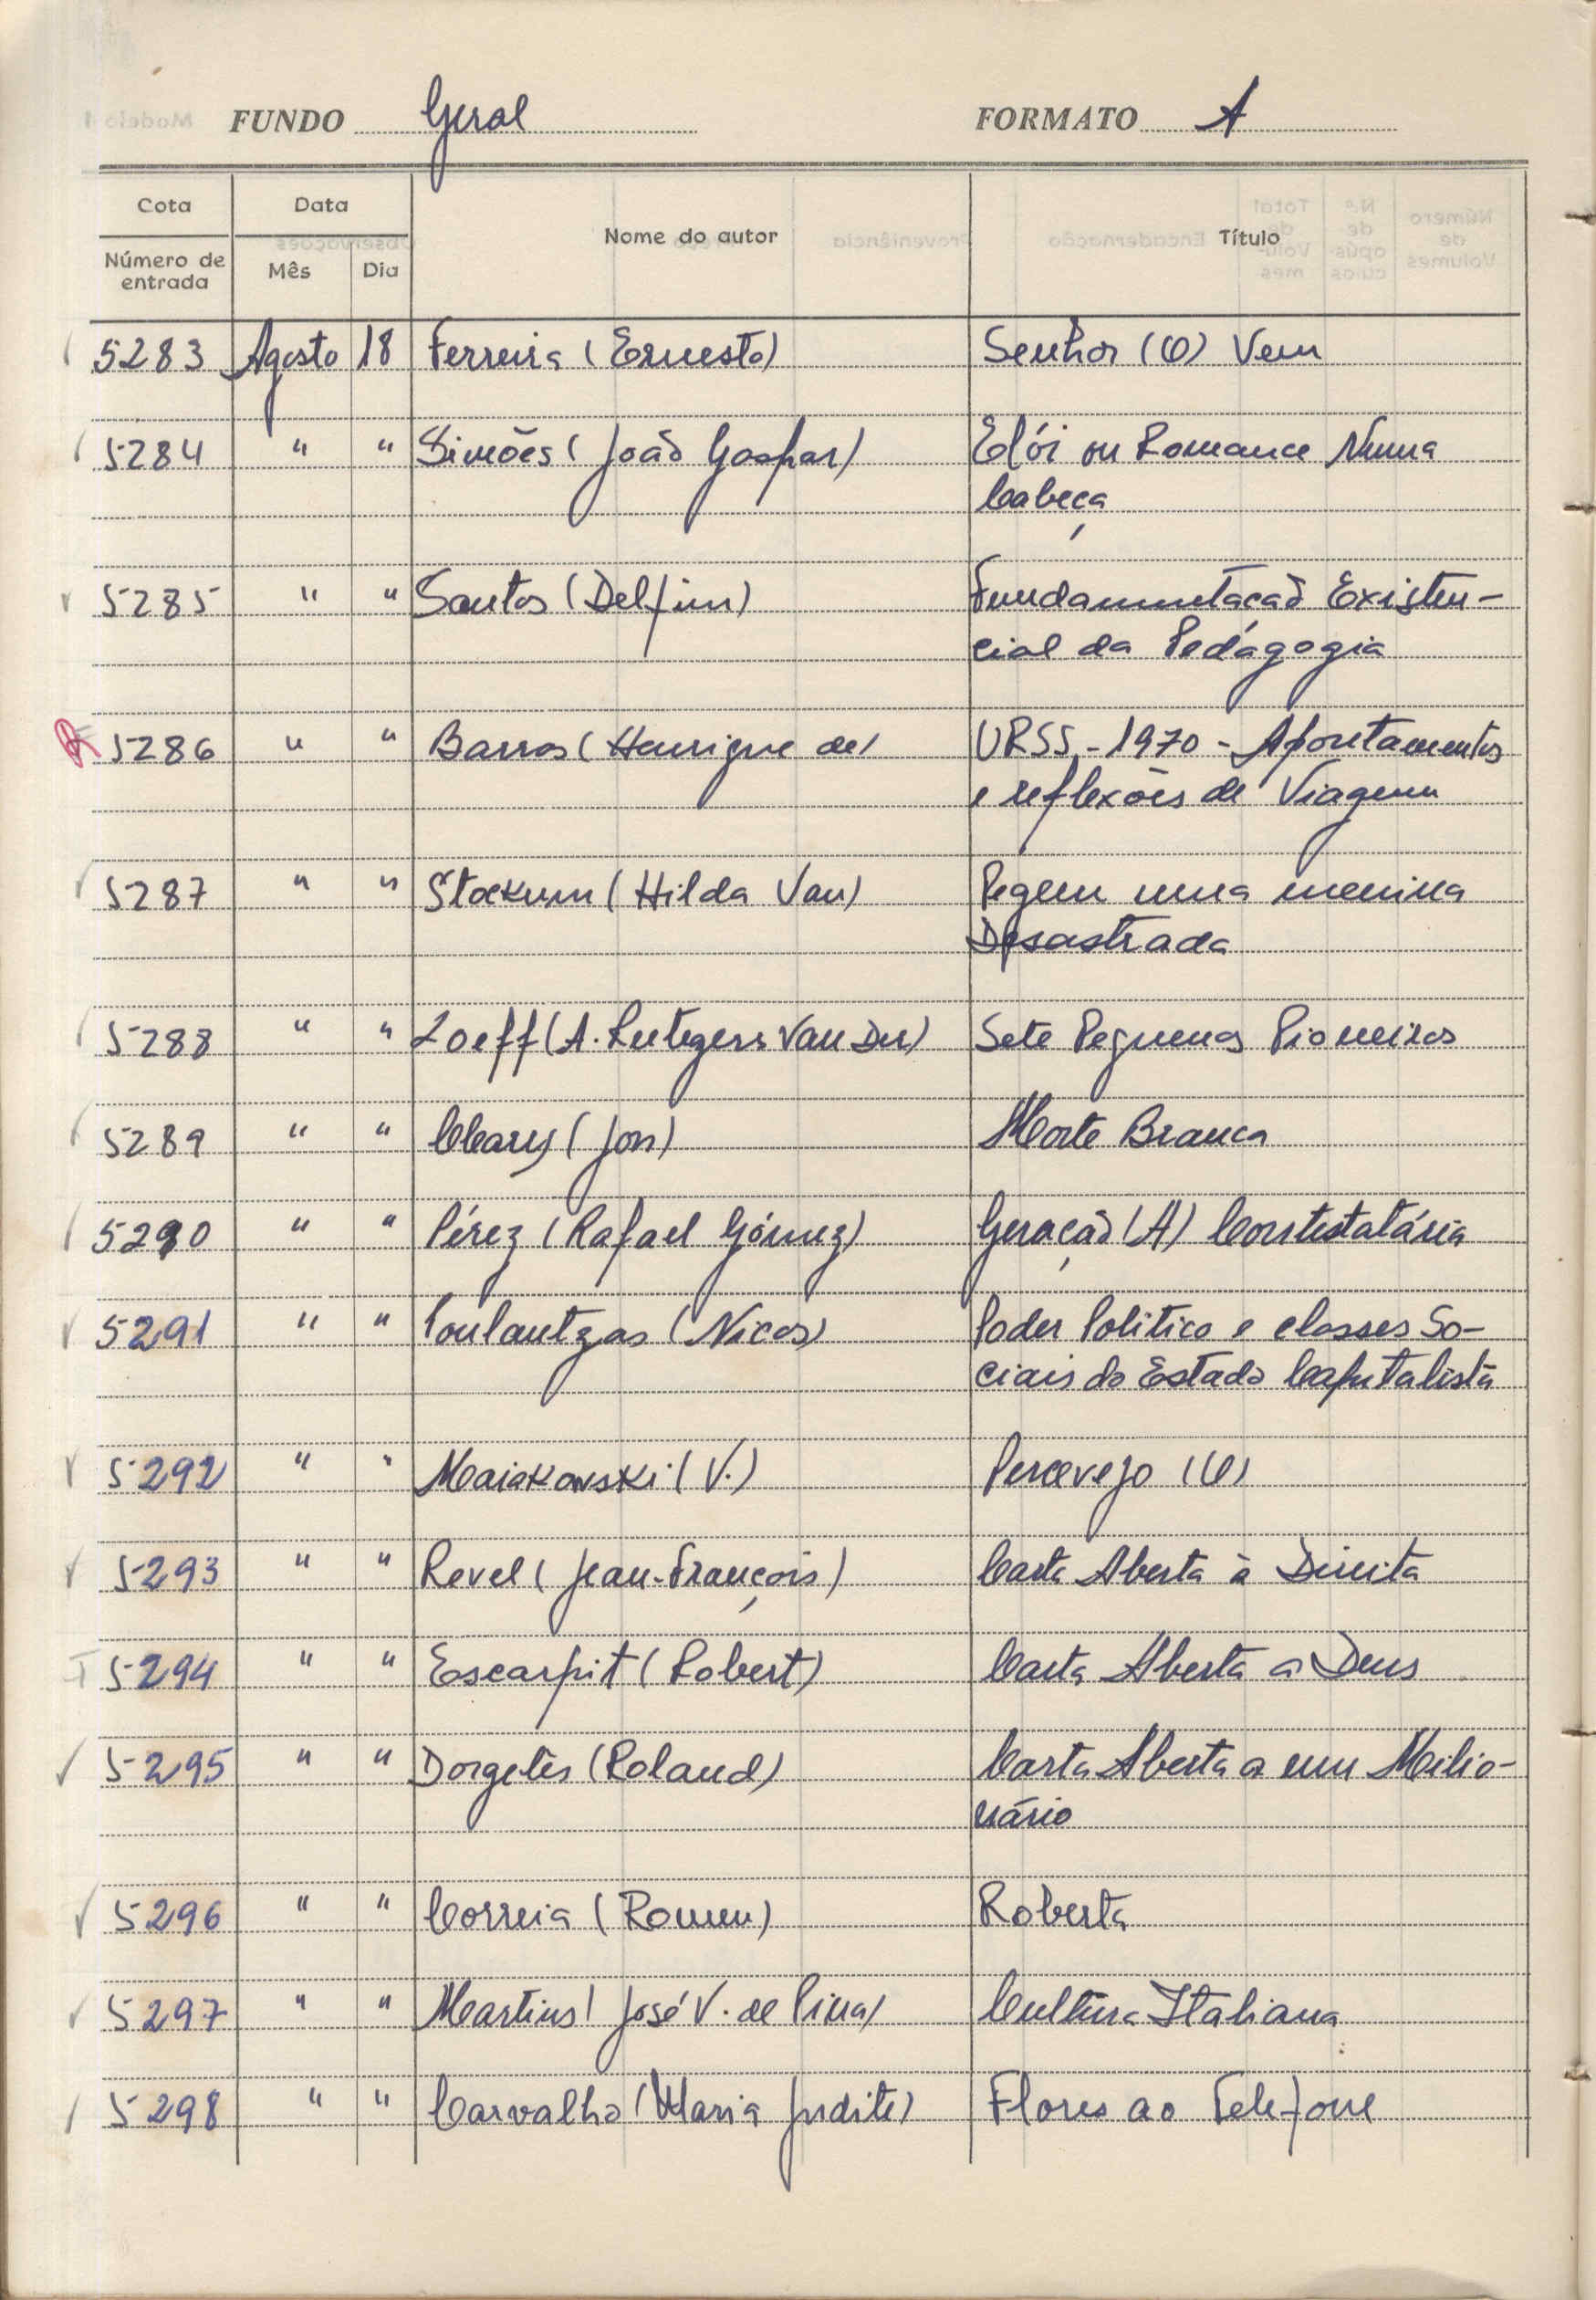 FUNDO Geral FORMATO A
Cota Data Nome do autor Título
Número de entrada Mês Dia
5283 Agosto 18 Ferreira (Ernesto) Senhor (O) Vem
5284 " " Simões (João Gaspar) Elói ou Romance Numa
Cabeça
5285 " " Santos (Delfim) Fundamentação Existen-
cial da Pedágogia
5286 " " Barros (Henrique de) URSS - 1970 - Apontamentos
e reflexões de Viagem
5287 " " Stockum (Hilda Van) Pegeen uma menina
Desastrada
5288 " " Loeff (A. Rutegers Van Der) Sete Pequenos Pioneiros
5289 " " Cleary (Jon) Morte Branca
5290 " " Pérez (Rafael Gómez) Geração (A) Contestatária
5291 " " Poulantzas (Nicos) Poder Politico e classes So-
ciais do Estado Capitalista
5292 " " Maiakovski (V.) Percevejo (O)
5293 " " Revel (Jean-François) Carta Aberta à Direita
5294 " " Escarpit (Robert) Carta Aberta a Deus
5295 " " Dorgelès (Roland) Carta Aberta a um Milio-
nário
5296 " " Correia (Romeu) Roberta
5297 " " Martins (José V. de Pina) Cultura Italiana
5298 " " Carvalho (Maria Judite) Flores ao Telefone